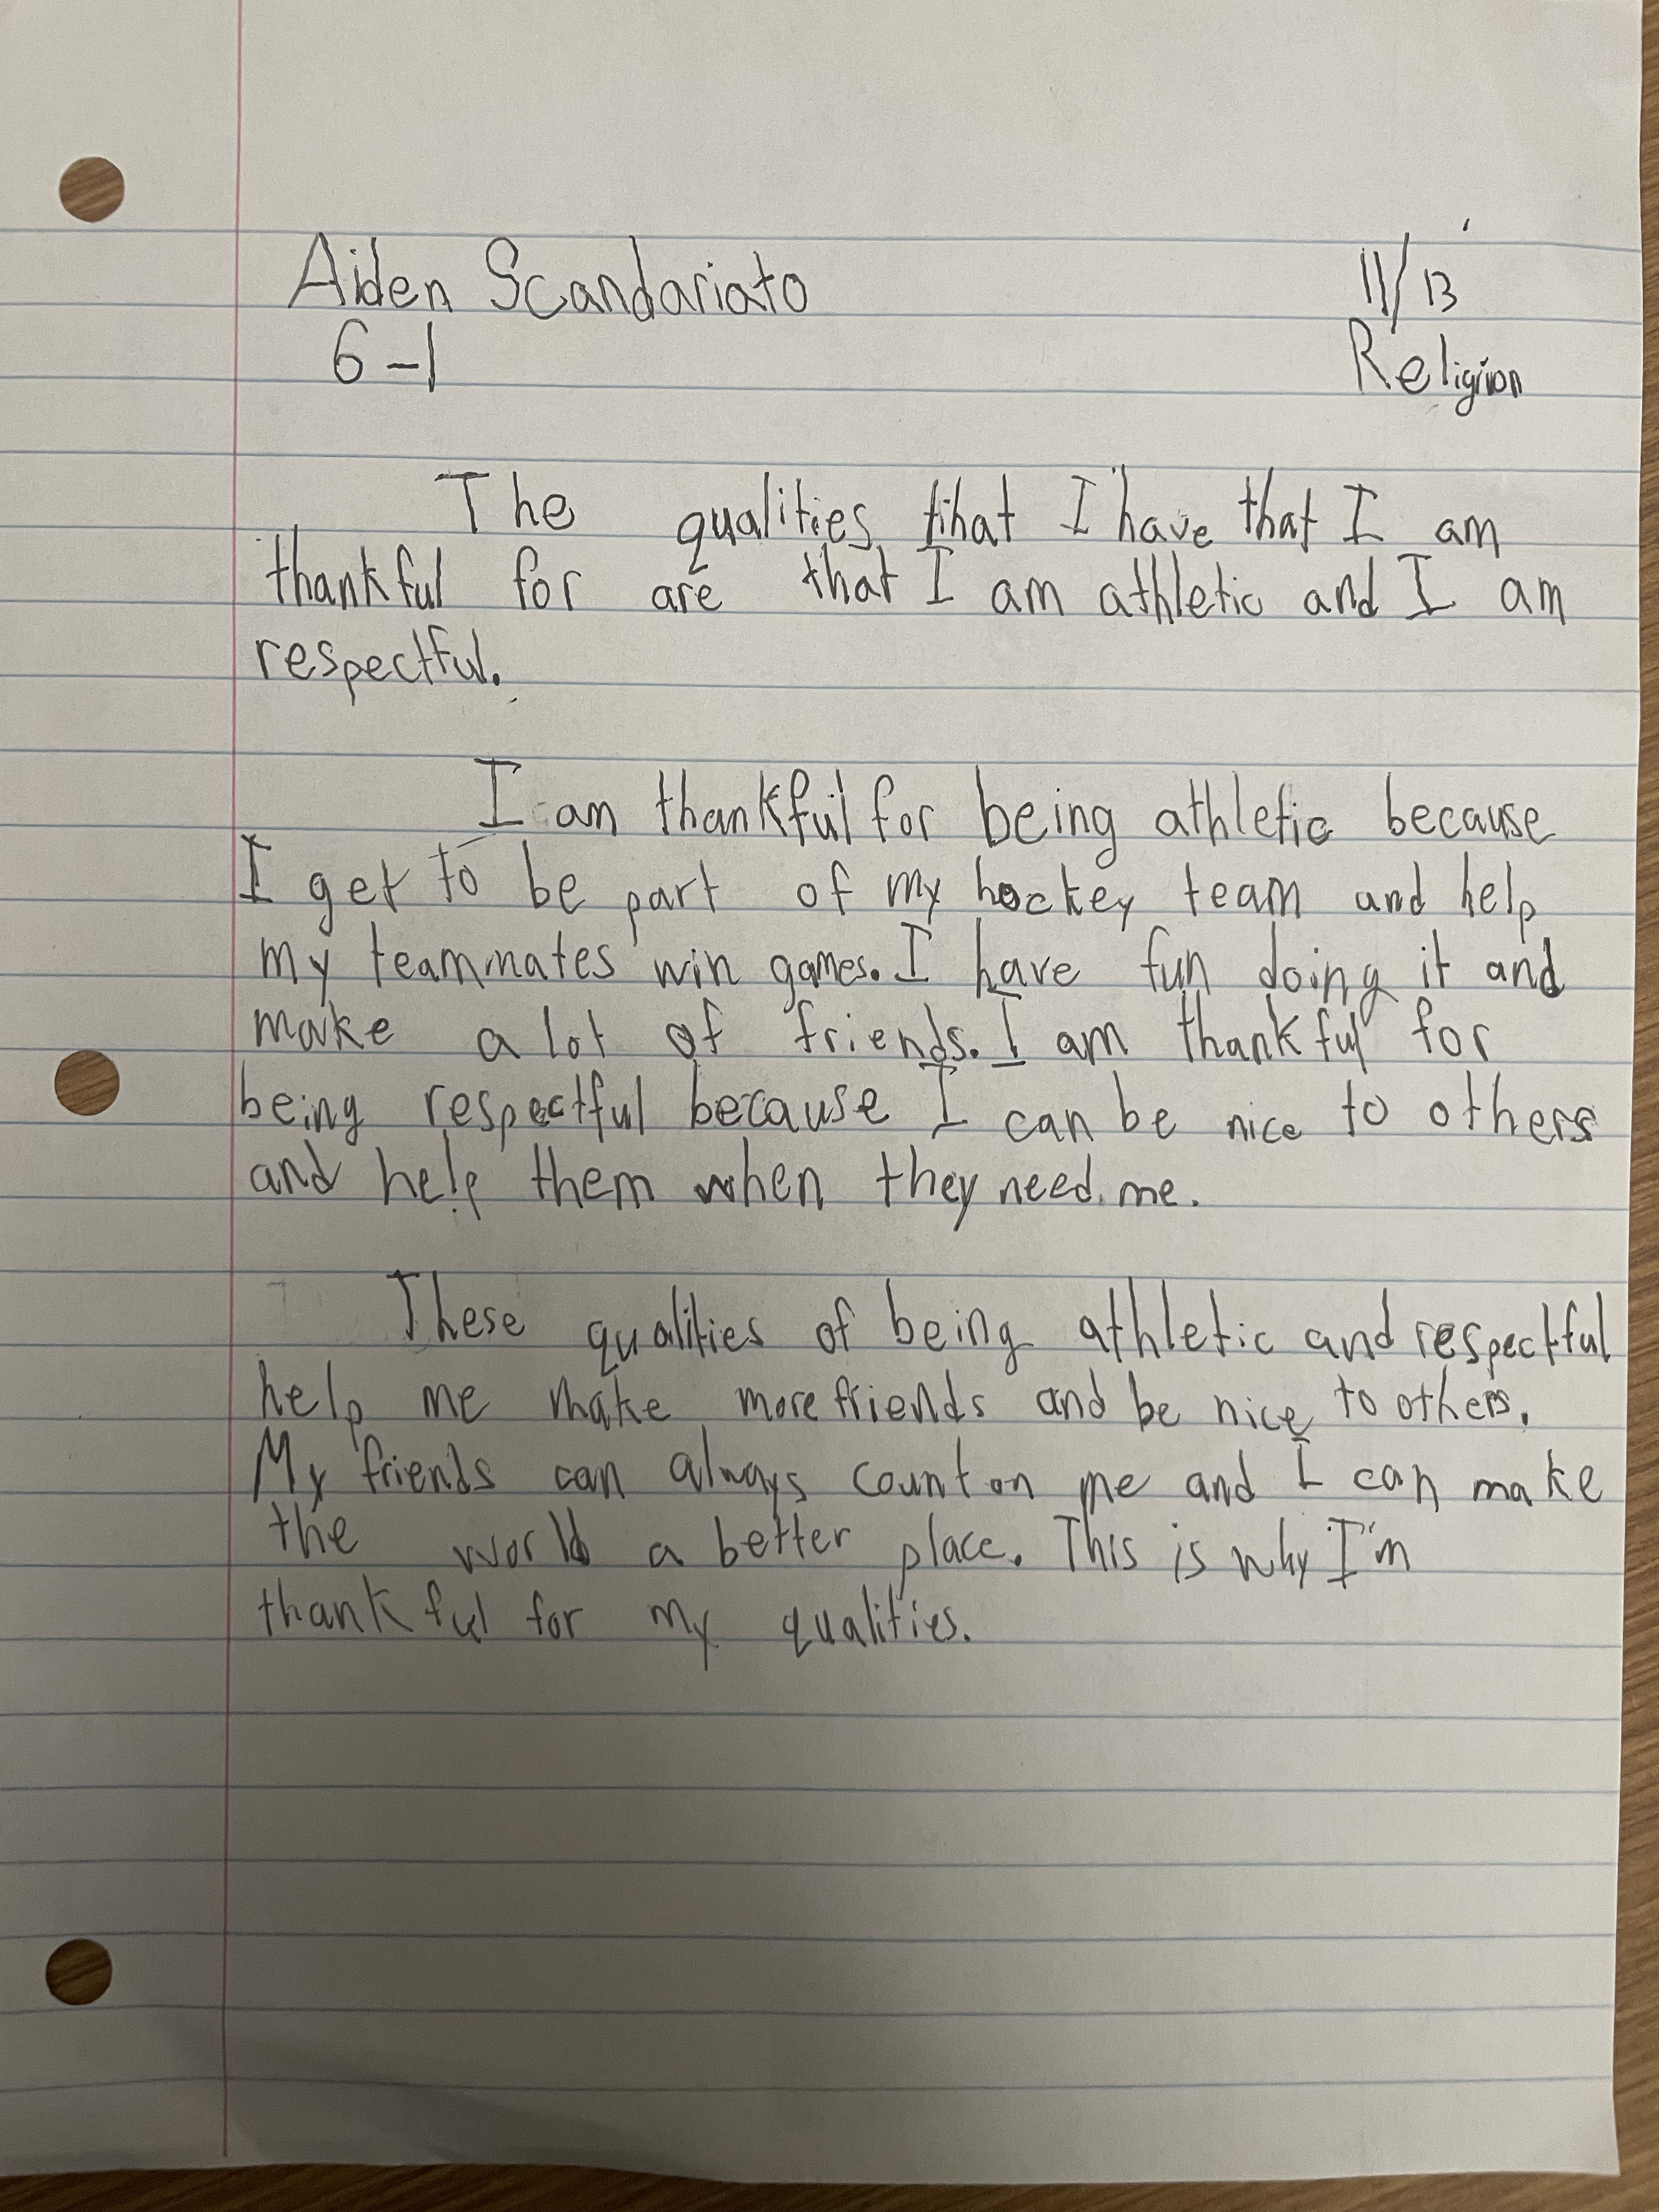 Aiden Scandariato 11/13
6-1 Religion
The qualities that I have that I am
thankful for are that I am athletic and I am
respectful.
I am thankful for being athletic because
I get to be part of my hockey team and help
my teammates win games. I have fun doing it and
make a lot of friends. I am thankful for
being respectful because I can be nice to others
and help them when they need me.
These qualities of being athletic and respectful
help me make more friends and be nice to others.
My friends can always count on me and I can make
the world a better place. This is why I'm
thankful for my qualities.